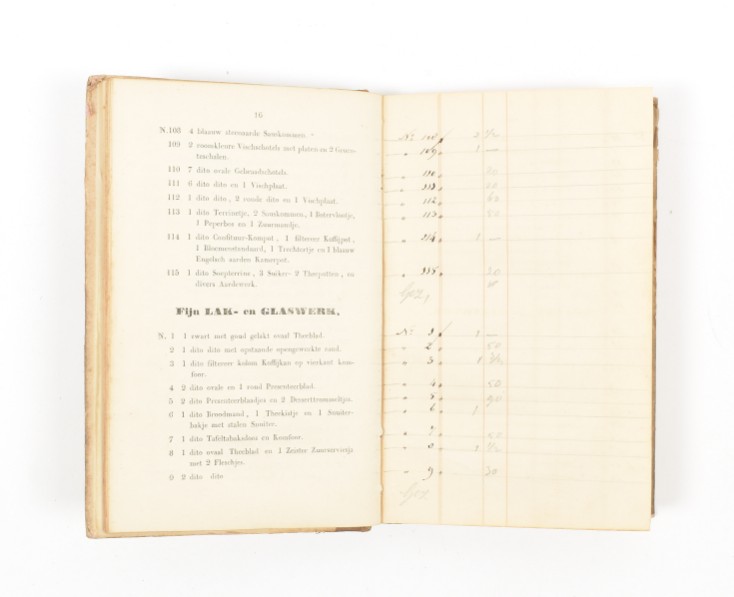 16
N.108 4 blaauw steenaarde Sauskommen.
109 2 rooskleute Vischschotels met platen en 2 Groentenschalen.
110 7 dito ovale Gebraadschotels.
111 6 dito dito en 1 Vischplaat.
112 1 dito dito, 2 ronde dito en 1 Vischplaat.
113 1 dito Terrientje, 2 Sauskommen, 1 Botervlootje,
1 Peperbos en 1 Zuurmandje.
114 1 dito Confituur-Kompot, 1 filtreer Koffijpot,
1 Bloemeestandaard, 1 Trechtertje en 1 blaauw
Engelsch aarden Kamerpot.
115 1 dito Soepterrine, 3 Suiker- 2 Theepotten, en
divers Aardewerk.
Fijn LAK- en GLASWERK.
N. 1 1 zwart met goud gelakt ovaal Theeblad.
2 1 dito dito met opstaande opengewerkte rand.
3 1 dito filtreer kolom Koffijkan op vierkant komfoor.
4 2 dito ovale en 1 rond Presenteerblad.
5 2 dito Presenteerblaadjes en 2 Desserttrommeltjes.
6 1 dito Broodmand, 1 Theekistje en 1 Snuiterbakje met stalen Snuiter.
7 1 dito Tafeltabakslaas en Komfoor.
8 1 dito ovaal Theeblad en 1 Zuurservies
met 2 Fleschjes.
9 2 dito dito
No 108 3 ½
109 1 —
110 30
111
112 60
113 50
114 1 —
115 30
No 1 1 —
2 50
3 1 ½
4 50
5 90
6 1
7 50
8 1 ½
9 30